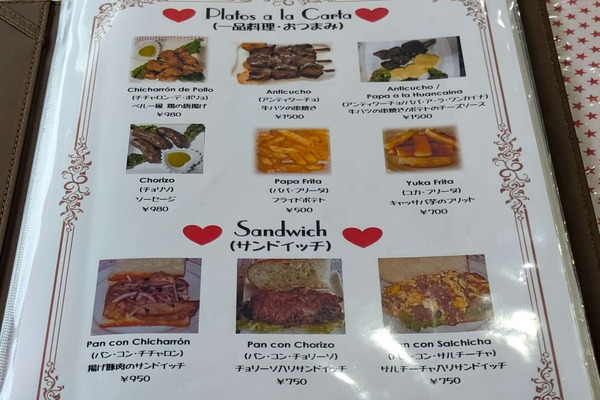 Platos a la Carta
(一品料理・おつまみ)
Chicharrón de Pollo
(チチャロン・デ・ポリョ)
ペルー風 鶏の唐揚げ
¥980
Anticucho
(アンティクーチョ)
牛ハツの串焼き
¥1500
Anticucho /
Papa a la Huancaina
(アンティクーチョ/パパ・ア・ラ・ワンカイナ)
牛ハツの串焼き/ポテトのチーズソース
¥1500
Chorizo
(チョリソ)
ソーセージ
¥980
Papa Frita
(パパ・フリータ)
フライドポテト
¥500
Yuka Frita
(ユカ・フリータ)
キャッサバ芋のフリット
¥700
Sandwich
(サンドイッチ)
Pan con Chicharrón
(パン・コン・チチャロン)
揚げ豚肉のサンドイッチ
¥950
Pan con Chorizo
(パン・コン・チョリーソ)
チョリーソ入りサンドイッチ
¥750
Pan con Salchicha
(パン・コン・サルチーチャ)
サルチーチャ入りサンドイッチ
¥750